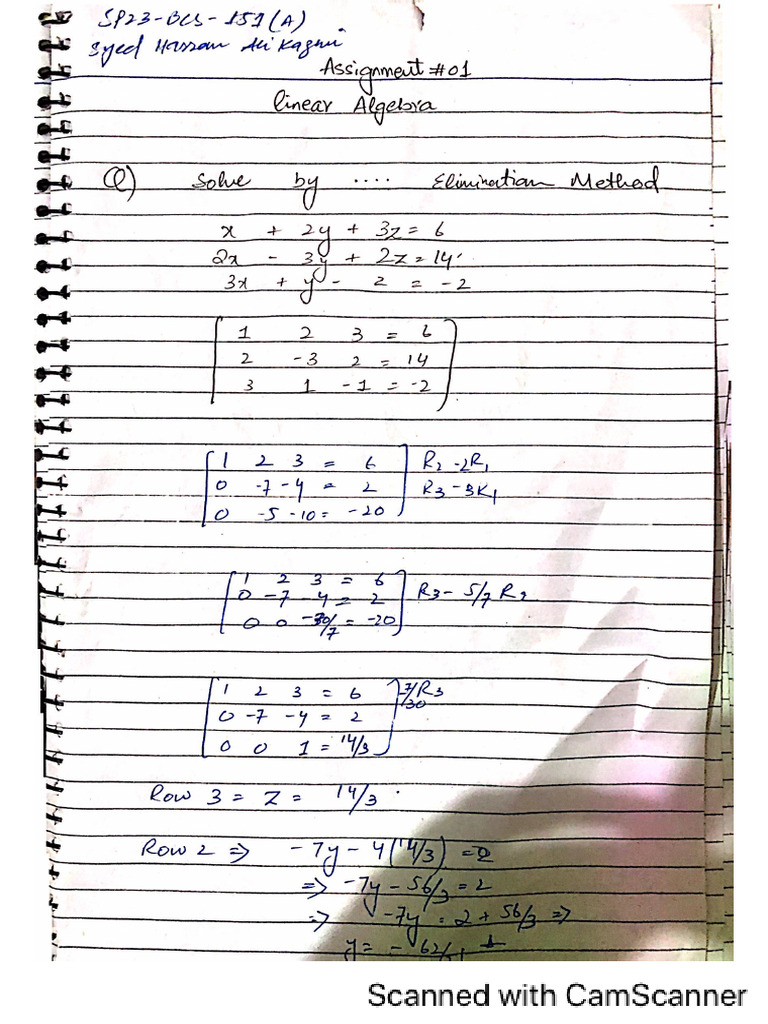 SP23-BCS-151(A)
Syed Hassan Ali Kazmi
Assignment #01
linear Algebra
Q) Solve by .... Elimination Method
x + 2y + 3z = 6
2x - 3y + 2z = 14
3x + y - z = -2
1 2 3 = 6
2 -3 2 = 14
3 1 -1 = -2
1 2 3 = 6 R2 -2R1
0 -7 -4 = 2 R3 -3R1
0 -5 -10 = -20
1 2 3 = 6
0 -7 -4 = 2 R3 - 5/7 R2
0 0 -30/7 = -20
1 2 3 = 6 7/30 R3
0 -7 -4 = 2
0 0 1 = 14/3
Row 3 = Z = 14/3
Row 2 => -7y - 4(14/3) = 2
=> -7y - 56/3 = 2
=> -7y = 2 + 56/3 =>
y = - 62/
Scanned with CamScanner